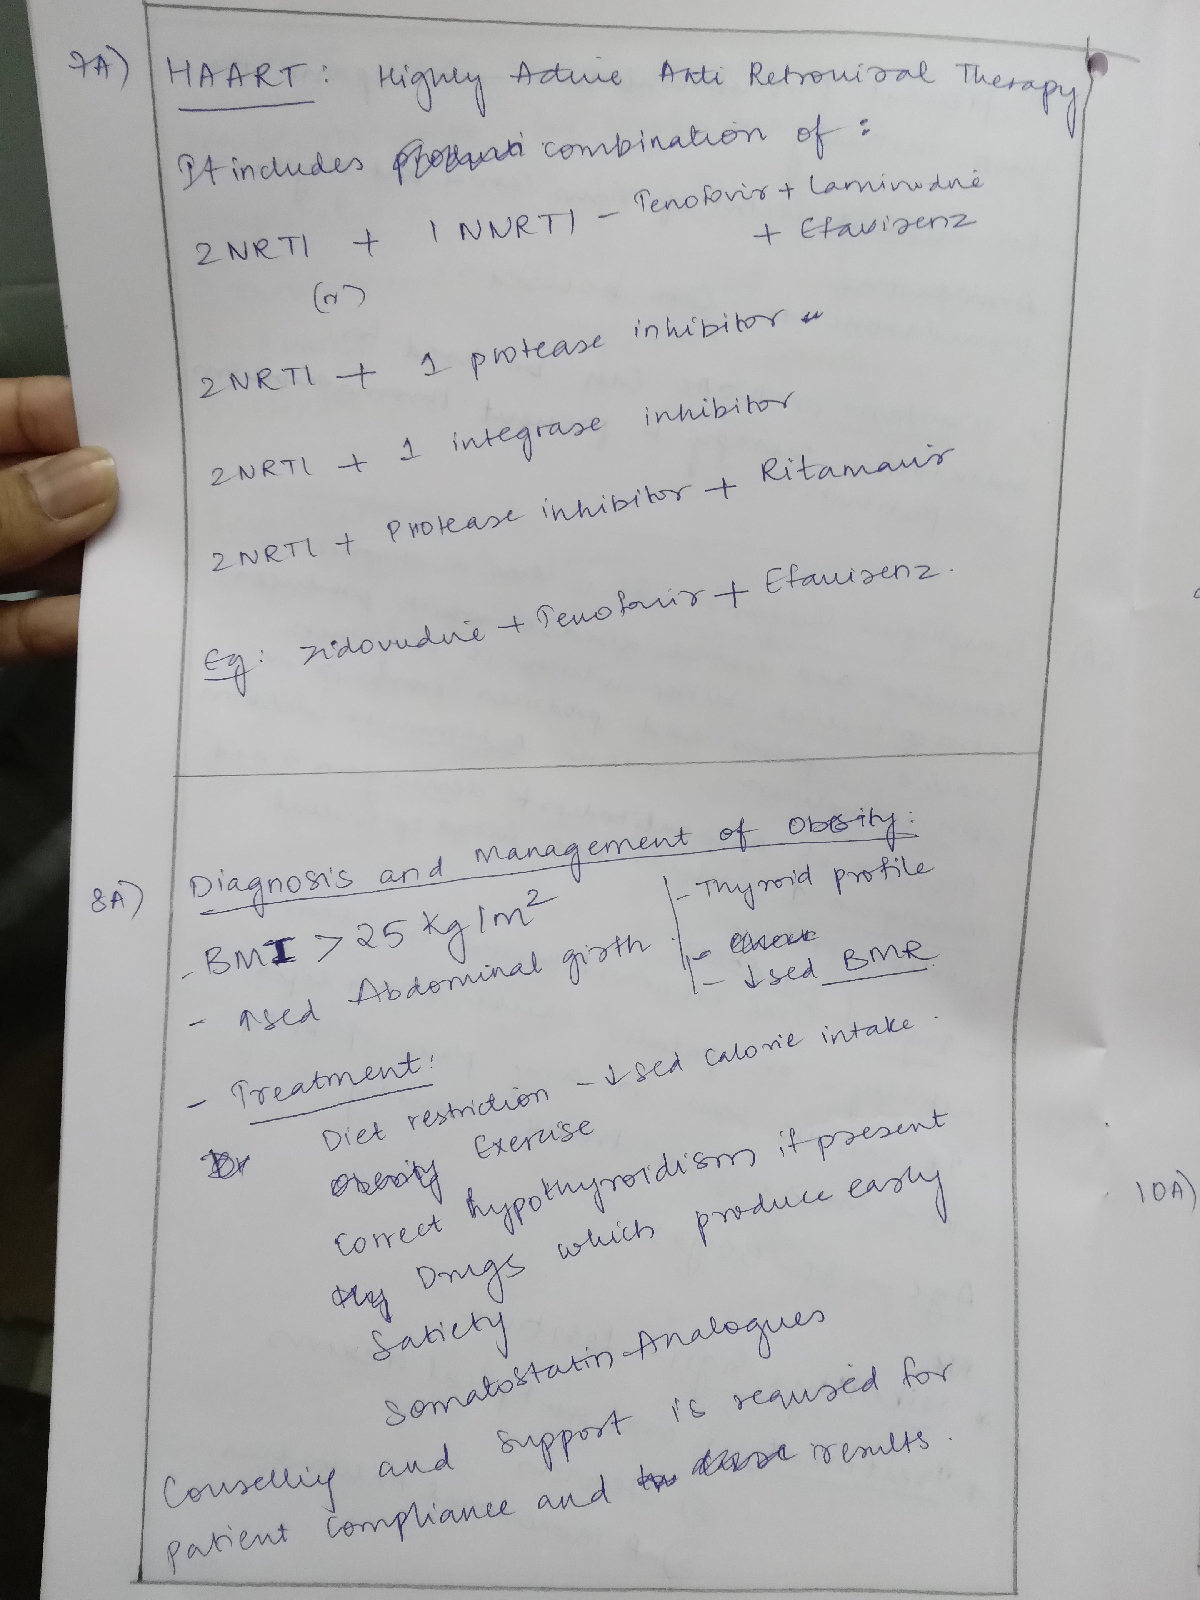 7A) HAART: Highly Active Anti Retroviral Therapy
It includes combination of :
2 NRTI + 1 NNRTI – Tenofovir + Lamivudine
+ Efavirenz
(or)
2 NRTI + 1 protease inhibitor
2 NRTI + 1 integrase inhibitor
2 NRTI + Protease inhibitor + Ritamavir
Eg: zidovudine + Tenofovir + Efavirenz.
8A) Diagnosis and Management of Obesity:
- BMI > 25 kg/m²
- ↑sed Abdominal girth
- Thyroid profile
- ↓sed BMR
- Treatment:
Diet restriction - ↓sed calorie intake.
Exercise
Correct hypothyroidism if present
Drugs which produce early
Satiety
Somatostatin Analogues
Counselling and support is required for
patient compliance and results.
10A)